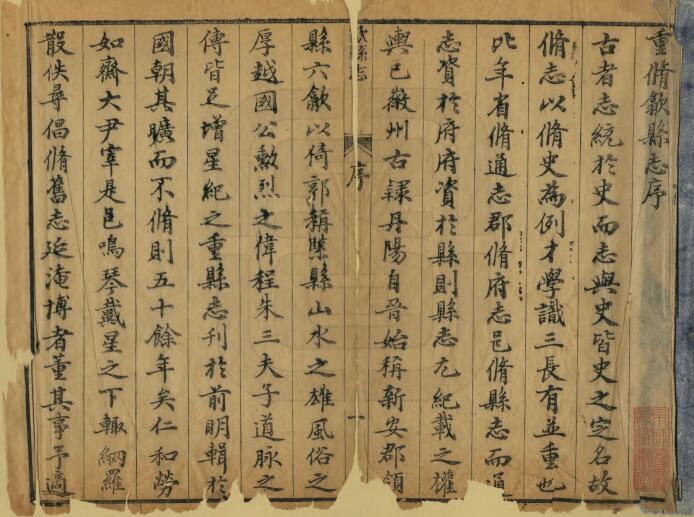 重脩歙縣志序
古者志統於史而志與史皆史之定名故
脩志以脩史為例才學識三長有並重也
比年省脩通志郡脩府志邑脩縣志而通
志資於府府資於縣則縣志尤紀載之權
輿已徽州古隸丹陽自晉始稱新安郡領
歙縣志
序
一
縣六歙以倚郭稱緊縣山水之雄風俗之
厚越國公勳烈之偉程朱三夫子道脉之
傳皆足增星紀之重縣志刊於前明輯於
國朝其曠而不脩則五十餘年矣仁和勞
如齋大尹宰是邑鳴琴戴星之下輙網羅
散佚尋倡脩舊志延淹博者董其事予適